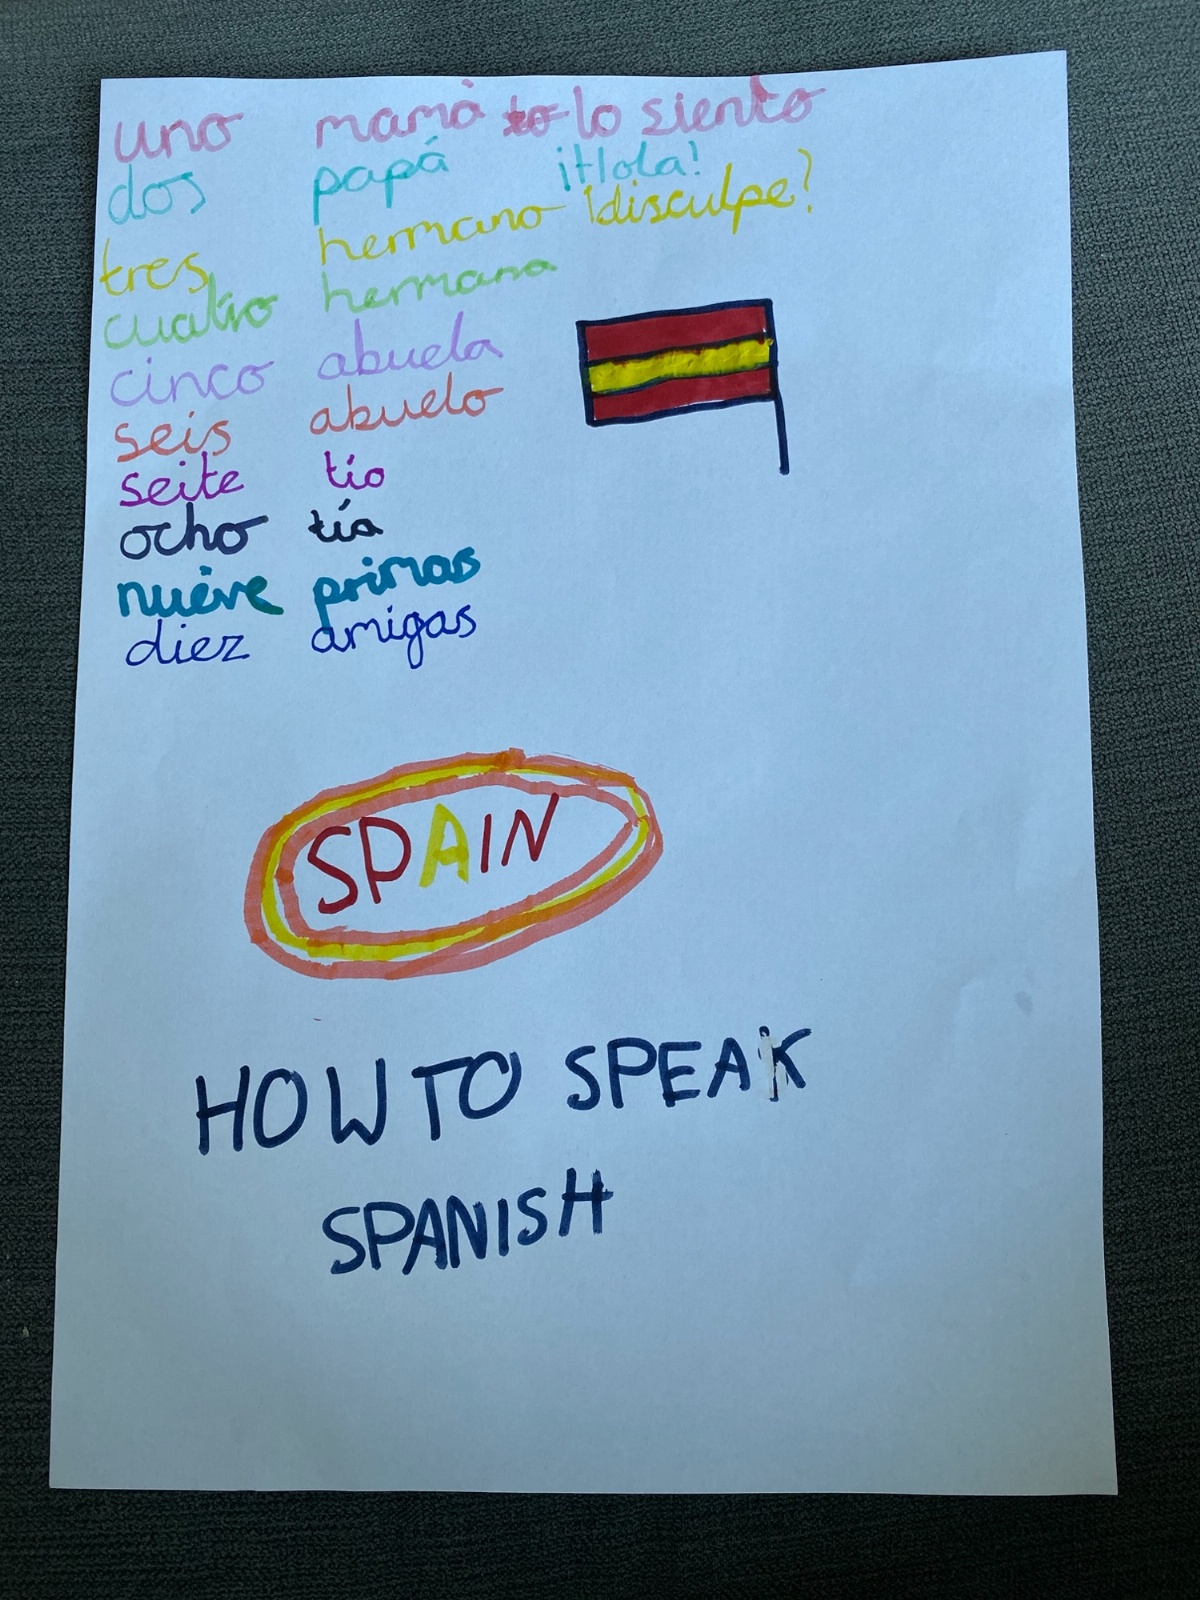 uno mamà to lo siento
dos papá ¡Hola!
tres hermano ¡disculpe?
cuatro hermana
cinco abuela
seis abuelo
seite tío
ocho tía
nuéve primas
diez amigas
SPAIN
HOW TO SPEAK
SPANISH